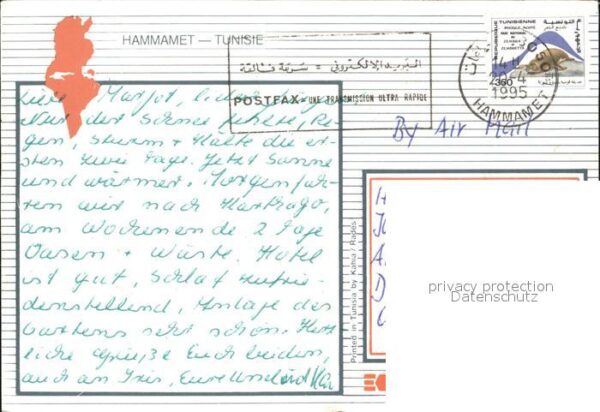 HAMMAMET — TUNISIE
البريد الإلكتروني = سرعة فائقة
POSTFAX = UNE TRANSMISSION ULTRA RAPIDE
REPUBLIQUE TUNISIENNE
360
20-4
1995
HAMMAMET
By Air Mail
Margot,
Nur der Sonne fehlte, Re-
gen, Sturm + Kälte die er-
sten zwei Tage. Jetzt Sonne
und wärmer. Morgen fah-
ren wir nach Karthago,
am Wochenende 2 Tage
Oasen + Wüste. Hotel
ist gut, Schlaf zufrie-
denstellend, Anlage des
Gartens sehr schön. Herz-
liche Grüße Euch beiden,
auch an Iris, Eure
Printed in Tunisia by Kahia / Radès
privacy protection
Datenschutz